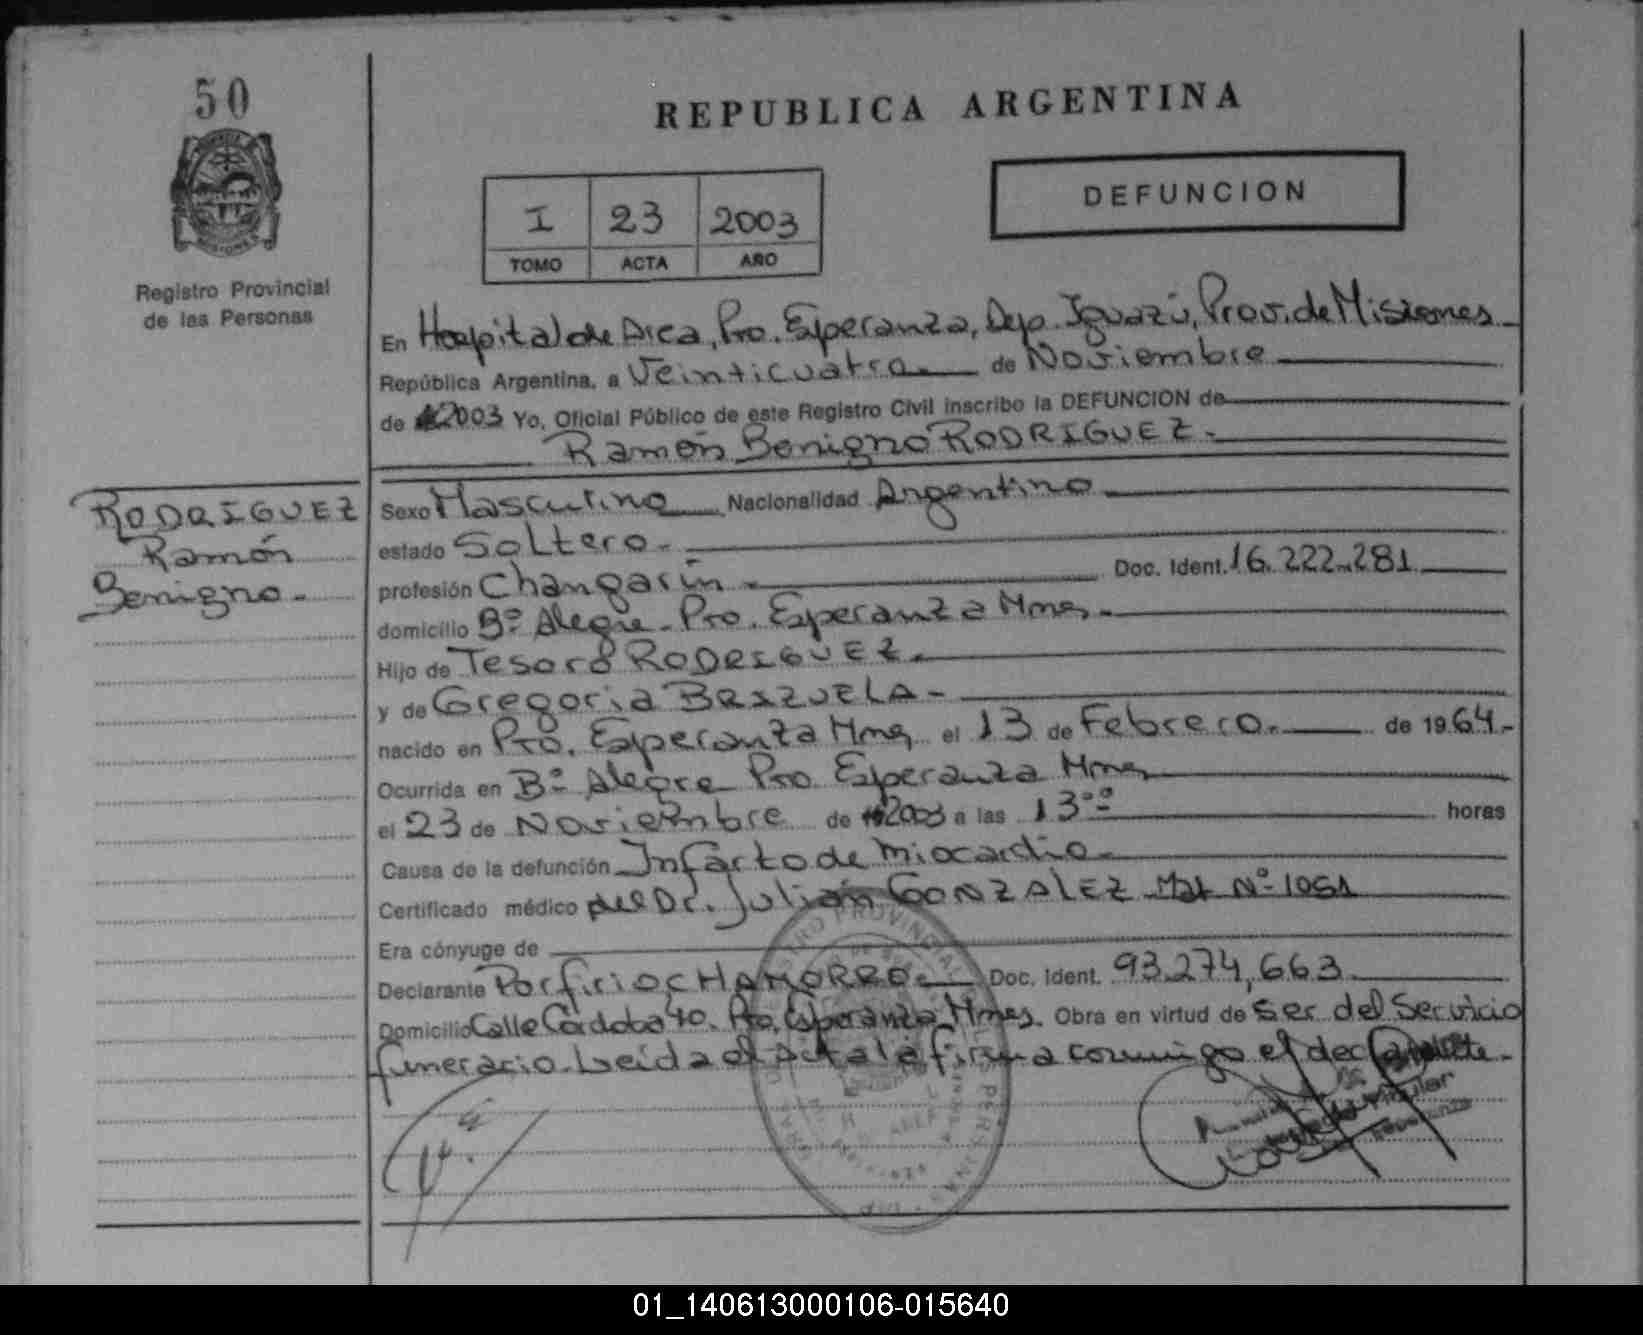 50
REPUBLICA ARGENTINA
DEFUNCION
I 23 2003
TOMO ACTA AÑO
Registro Provincial
de las Personas
En Hospital de Area, Pto. Esperanza, Dep. Iguazú, Prov. de Misiones
República Argentina, a Veinticuatro de Noviembre
de 2003 Yo, Oficial Público de este Registro Civil inscribo la DEFUNCION de
Ramón Benigno RODRIGUEZ.
RODRIGUEZ
Ramón
Benigno.
Sexo Masculino Nacionalidad Argentino
estado Soltero.
profesión Changarín. Doc. Ident. 16.222.281
domicilio Bº Alegre. Pto. Esperanza Mnes.
Hijo de Tesoro RODRIGUEZ.
y de Gregoria BRIZUELA.
nacido en Pto. Esperanza Mnes el 13 de Febrero. de 1964.
Ocurrida en Bº Alegre Pto Esperanza Mnes
el 23 de Noviembre de 2003 a las 13ºº horas
Causa de la defunción Infarto de miocardio.
Certificado médico del Dr. Julián GONZALEZ Mat Nº 1051
Era cónyuge de
Declarante Porfirio CHAMORRO. Doc. Ident. 93.274,663
Domicilio Calle Córdoba 40. Pto. Esperanza Mnes. Obra en virtud de Ser del Servicio
funerario. Leída el Acta la firma conmigo el declarante.
01_140613000106-015640